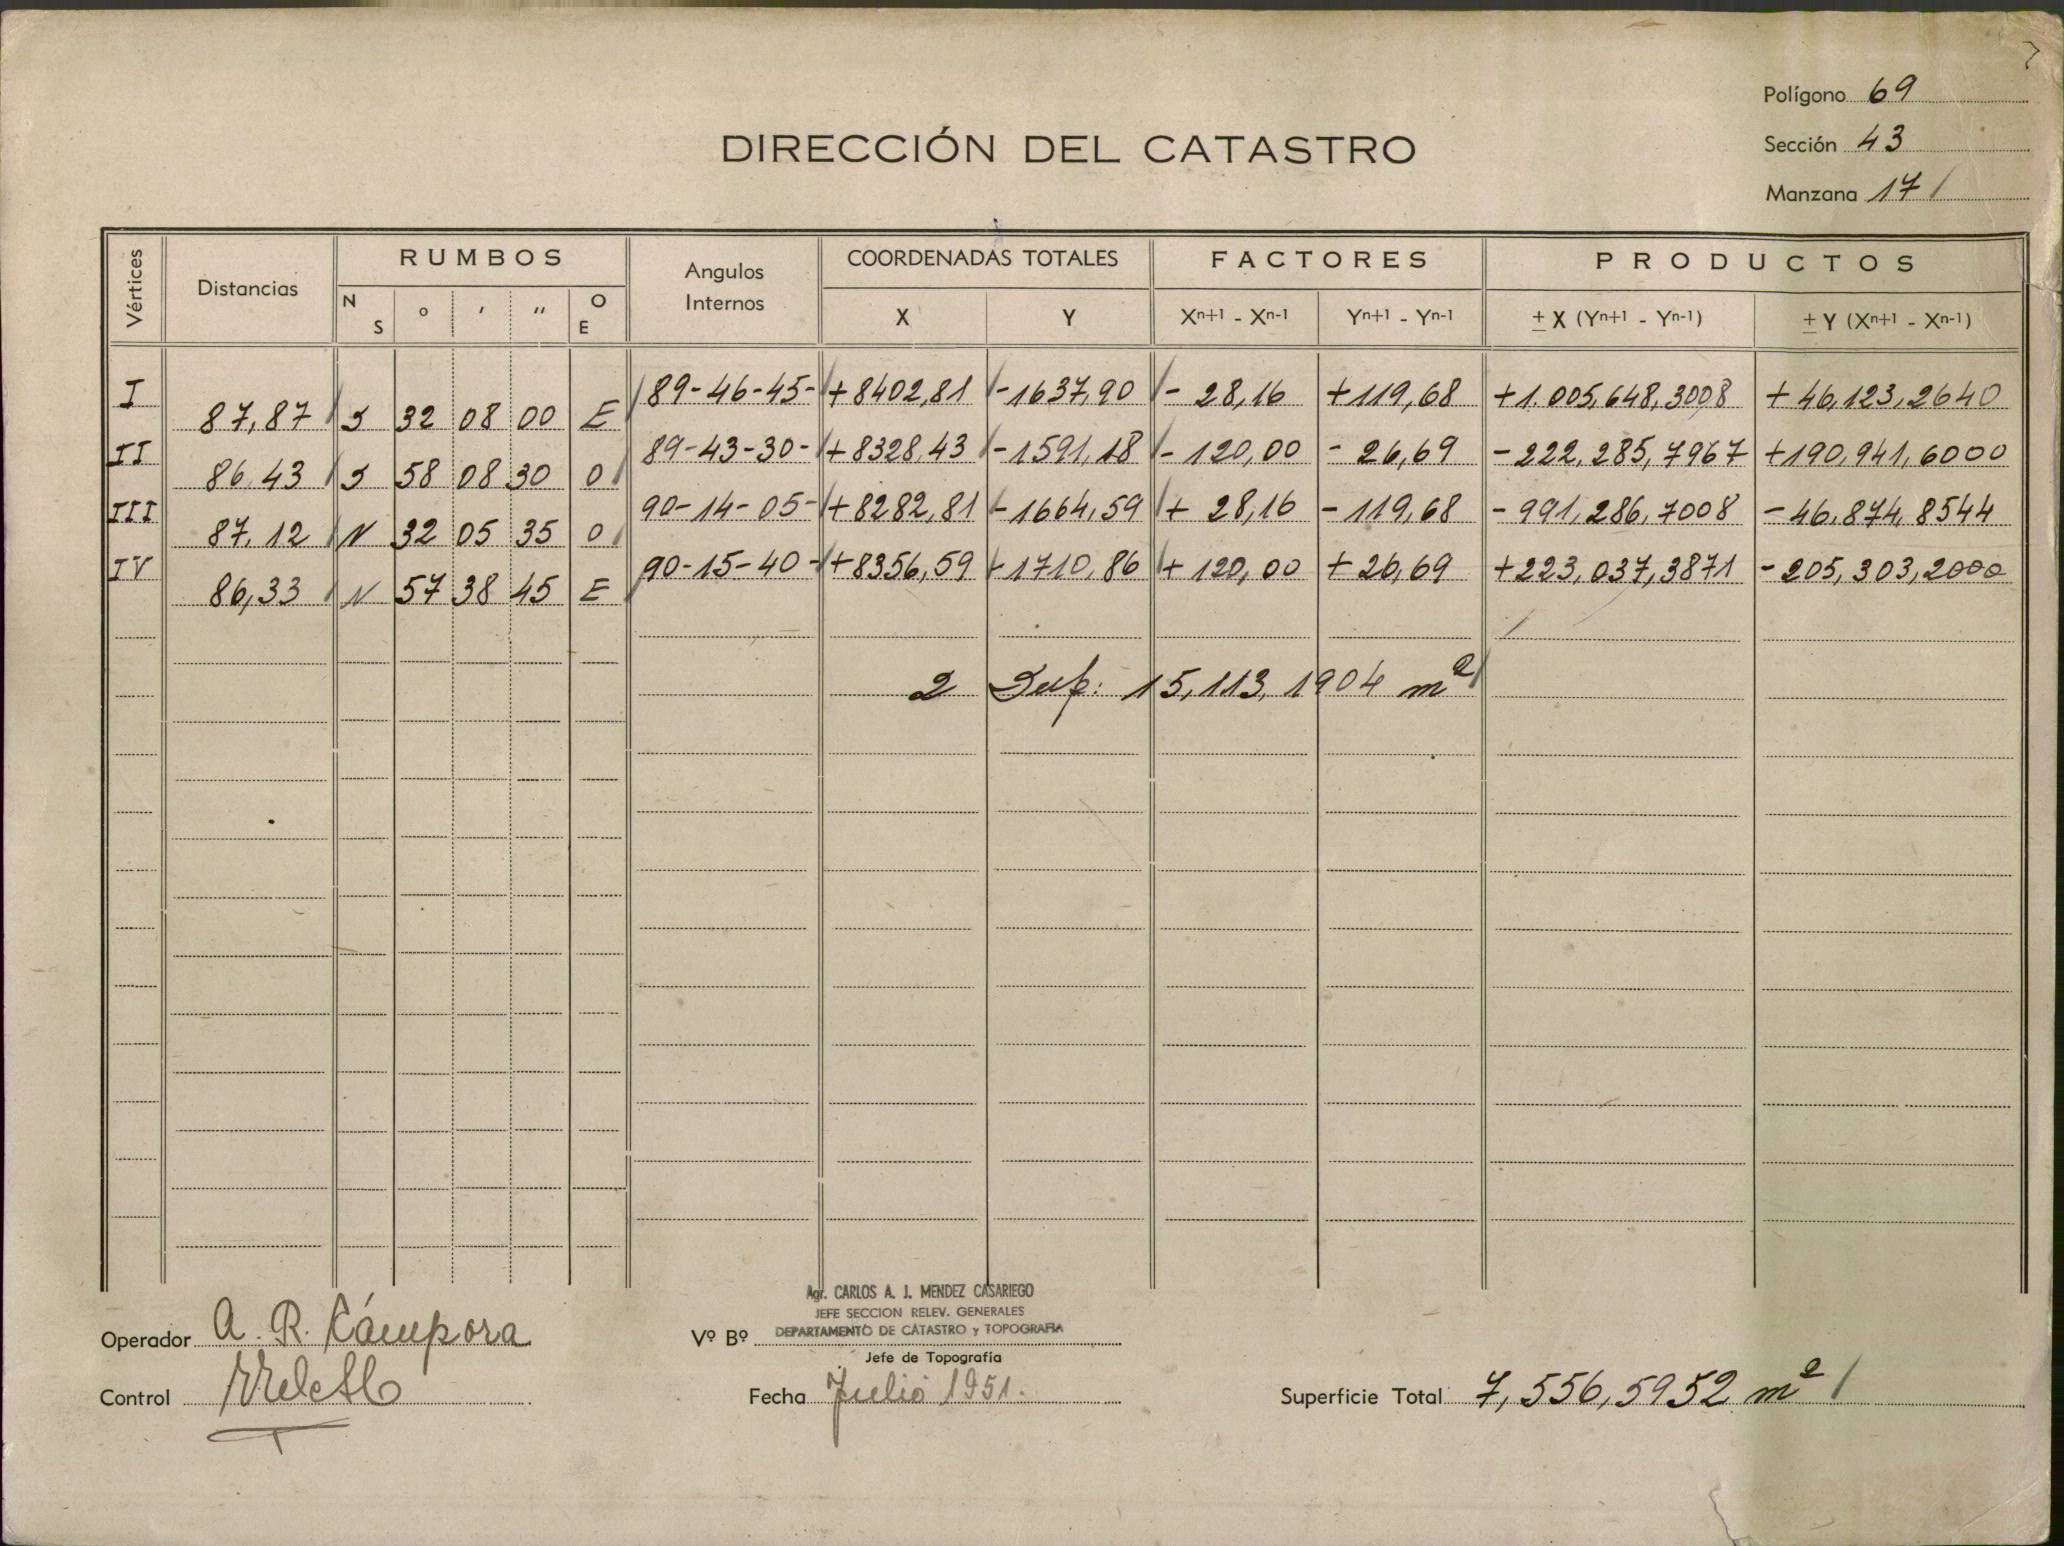 Polígono 69
DIRECCIÓN DEL CATASTRO
Sección 43
Manzana 17
Vértices
Distancias
RUMBOS
N S
° ' "
O E
Angulos Internos
COORDENADAS TOTALES
X Y
FACTORES
Xn+1 - Xn-1 Yn+1 - Yn-1
PRODUCTOS
± X (Yn+1 - Yn-1) ± Y (Xn+1 - Xn-1)
I 89-46-45- +8402,81 -1637,90 - 28,16 +119,68 +1.005,648,3008 + 46,123,2640
87,87 S 32 08 00 E
II 89-43-30- +8328,43 -1591,18 - 120,00 - 26,69 -222,285,7967 +190,941,6000
86,43 S 58 08 30 O
III 90-14-05- +8282,81 -1664,59 + 28,16 -119,68 -991,286,7008 -46,874,8544
87,12 N 32 05 35 O
IV 90-15-40- +8356,59 -1710,86 + 120,00 + 26,69 +223,037,3871 -205,303,2000
86,33 N 57 38 45 E
2 Sup: 15,113,1904 m²
Agr. CARLOS A. J. MENDEZ CASARIEGO
JEFE SECCION RELEV. GENERALES
DEPARTAMENTO DE CATASTRO y TOPOGRAFIA
Operador A. R. Cámpora
Vº Bº
Jefe de Topografía
Control
Fecha Julio 1951.
Superficie Total 7,556,5952 m²